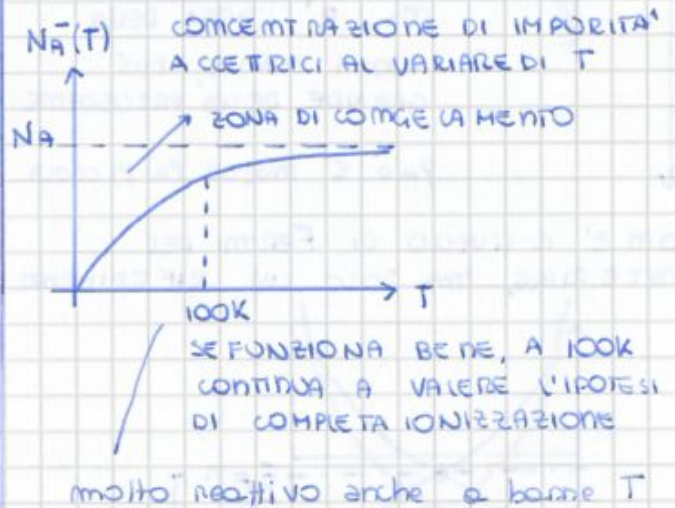 NA⁻(T) CONCENTRAZIONE DI IMPURITA'
ACCETTRICI AL VARIARE DI T
ZONA DI CONGELAMENTO
NA
T
100K
SE FUNZIONA BENE, A 100K
CONTINUA A VALERE L'IPOTESI
DI COMPLETA IONIZZAZIONE
molto reattivo anche a basse T